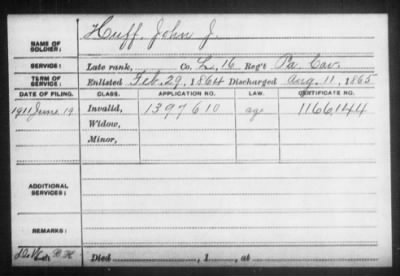 NAME OF SOLDIER: Huff, John J.
SERVICE: Late rank, Co. L, 16 Reg't Pa. Cav.
TERM OF SERVICE: Enlisted Feb. 29, 1864 Discharged Aug. 11, 1865
DATE OF FILING. CLASS. APPLICATION NO. LAW. CERTIFICATE NO.
1911 June 19 Invalid, 1397610 age 1166,144
Widow,
Minor,
ADDITIONAL SERVICES:
REMARKS:
Died , 1 , at